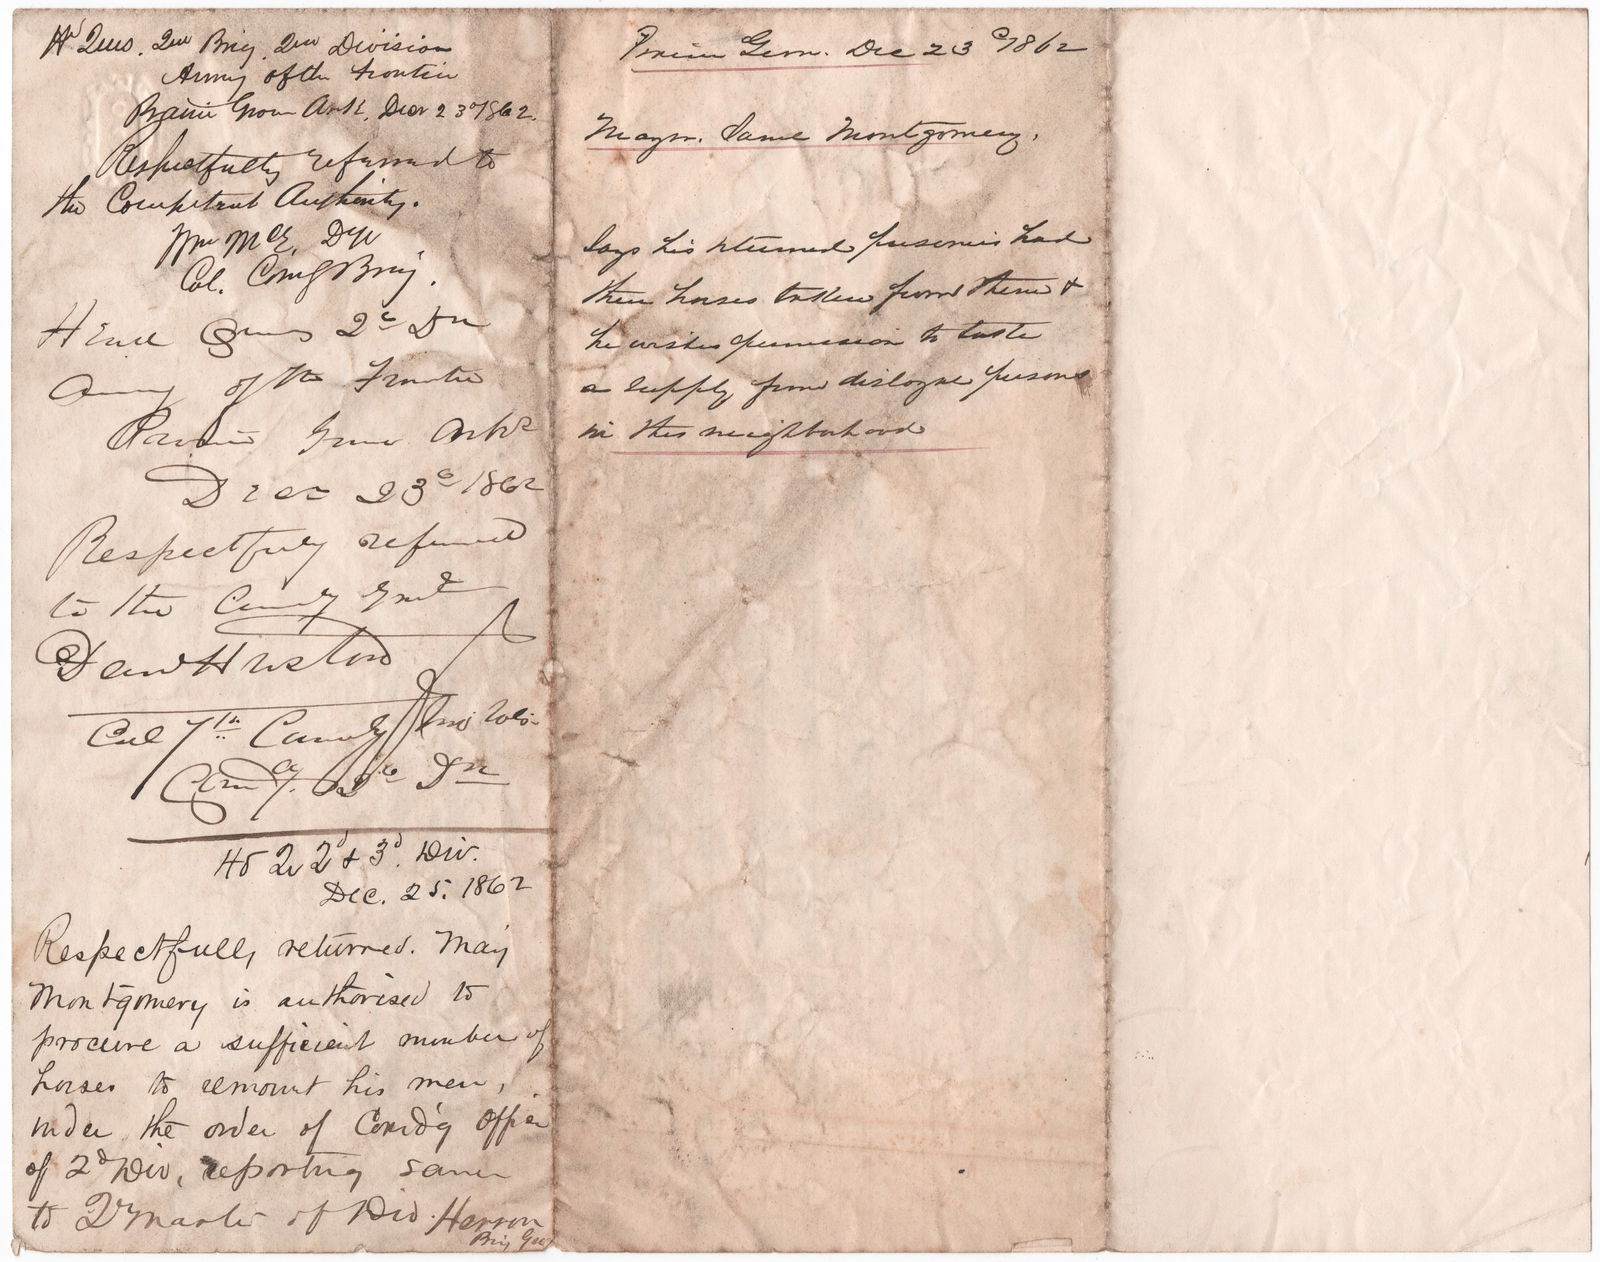 Hd Qurs. 2nd Brig. 2nd Division
Army of the Frontier
Prairie Grove Ark. Decr 23d 1862.
Respectfully referred to
the Competent Authority.
Wm McE. Dye
Col. Comg Brig.
Head Qrs 2d Dn
Army of the Frontier
Prairie Grove Arks
Decr 23d 1862
Respectfuly referred
to the Comdg Genl
Danl Huston
Col 7th Cavaly Mo Vols
Comdg. 2d Dn
Hd Qr 2d & 3d. Div.
Dec. 25. 1862
Respectfully returned. Maj
Montgomery is authorised to
procure a sufficient number of
horses to remount his men,
under the order of Comd'g Officer
of 2d Div, reporting same
to Qr Master of Div. Herron
Brig Gen
Prairie Grove. Dec 23d 1862
Major. James Montgomery.
Says his returned prisoners had
their horses taken from them &
he wishes permission to take
a supply from disloyal persons
in this neighborhood